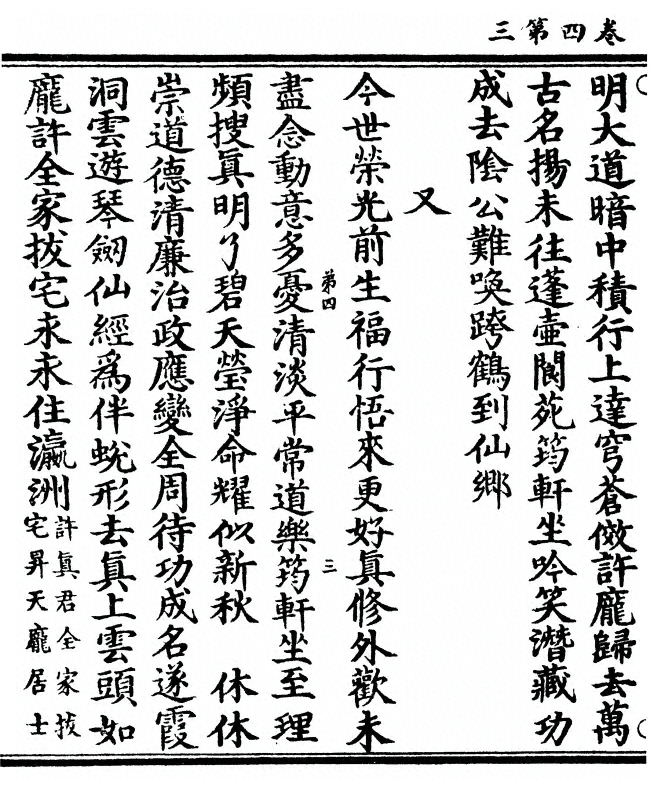 三第四卷
明大道暗中積行上達穹蒼傚許龐歸去萬
古名揚未往蓬壺閬苑筠軒坐吟笑潛藏功
成去陰公難喚跨鶴到仙鄉
又
今世榮光前生福行悟來更好真修外歡未
盡念動意多憂清淡平常道樂筠軒坐至理
第四
三
頻搜真明了碧天瑩淨命耀似新秋　休休
崇道德清廉治政應變全周待功成名遂霞
洞雲遊琴劒仙經爲伴蛻形去真上雲頭如
龐許全家拔宅永永住瀛洲許真君全家拔
宅昇天龐居士